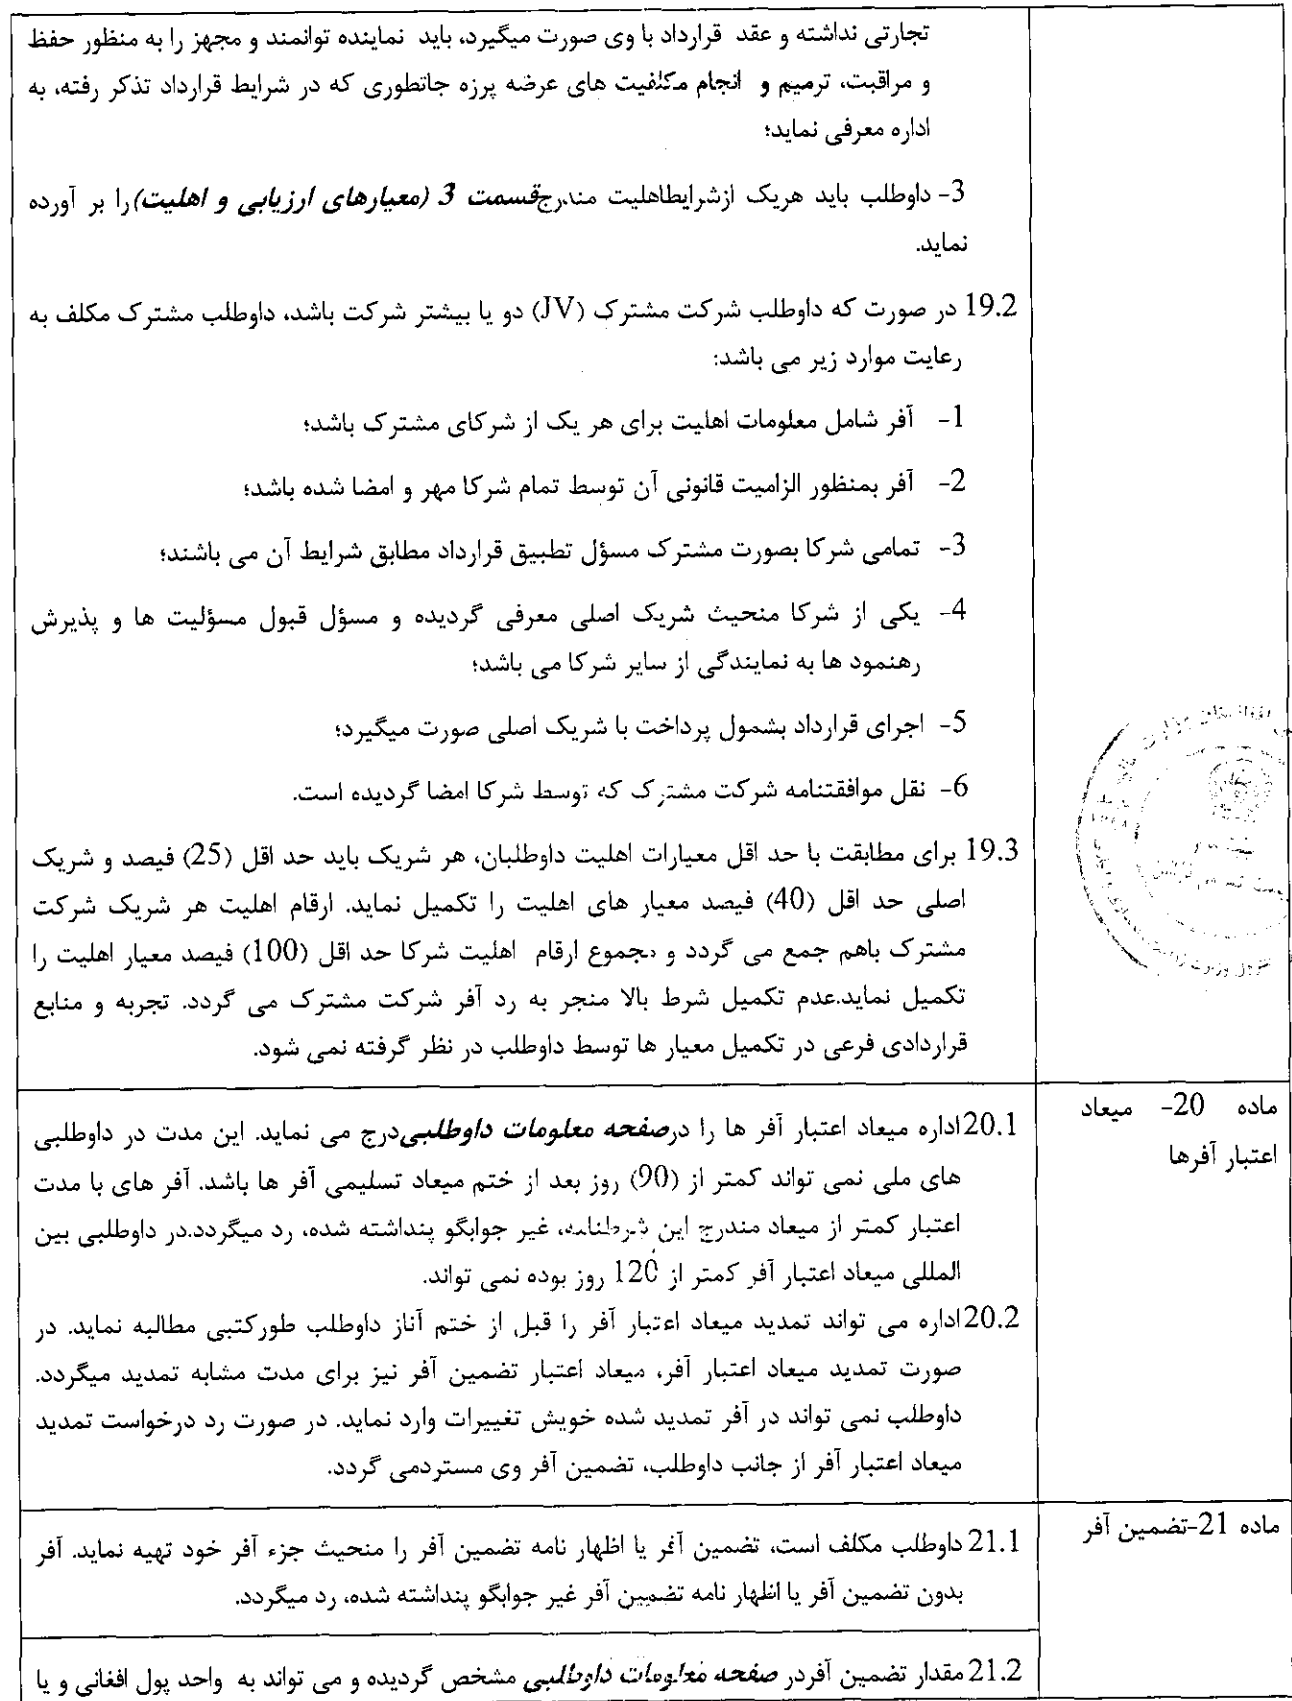 تجارتی نداشته و عقد قرارداد با وی صورت میگیرد، باید نماینده توانمند و مجهز را به منظور حفظ
و مراقبت، ترمیم و انجام مکلفیت های عرضه پرزه جاتطوری که در شرایط قرارداد تذکر رفته، به
اداره معرفی نماید؛
3- داوطلب باید هریک ازشرایطاهلیت مندرجقسمت 3 (معیارهای ارزیابی و اهلیت)را بر آورده
نماید.
19.2 در صورت که داوطلب شرکت مشترک (JV) دو یا بیشتر شرکت باشد، داوطلب مشترک مکلف به
رعایت موارد زیر می باشد:
1- آفر شامل معلومات اهلیت برای هر یک از شرکای مشترک باشد؛
2- آفر بمنظور الزامیت قانونی آن توسط تمام شرکا مهر و امضا شده باشد؛
3- تمامی شرکا بصورت مشترک مسؤل تطبیق قرارداد مطابق شرایط آن می باشند؛
4- یکی از شرکا منحیث شریک اصلی معرفی گردیده و مسؤل قبول مسؤلیت ها و پذیرش
رهنمود ها به نمایندگی از سایر شرکا می باشد؛
5- اجرای قرارداد بشمول پرداخت با شریک اصلی صورت میگیرد؛
6- نقل موافقتنامه شرکت مشترک که توسط شرکا امضا گردیده است.
19.3 برای مطابقت با حد اقل معیارات اهلیت داوطلبان، هر شریک باید حد اقل (25) فیصد و شریک
اصلی حد اقل (40) فیصد معیار های اهلیت را تکمیل نماید. ارقام اهلیت هر شریک شرکت
مشترک باهم جمع می گردد و مجموع ارقام اهلیت شرکا حد اقل (100) فیصد معیار اهلیت را
تکمیل نماید.عدم تکمیل شرط بالا منجر به رد آفر شرکت مشترک می گردد. تجربه و منابع
قراردادی فرعی در تکمیل معیار ها توسط داوطلب در نظر گرفته نمی شود.
ماده 20- میعاد
اعتبار آفرها
20.1اداره میعاد اعتبار آفر ها را درصفحه معلومات داوطلبیدرج می نماید. این مدت در داوطلبی
های ملی نمی تواند کمتر از (90) روز بعد از ختم میعاد تسلیمی آفر ها باشد. آفر های با مدت
اعتبار کمتر از میعاد مندرج این شرطنامه، غیر جوابگو پنداشته شده، رد میگردد.در داوطلبی بین
المللی میعاد اعتبار آفر کمتر از 120 روز بوده نمی تواند.
20.2اداره می تواند تمدید میعاد اعتبار آفر را قبل از ختم آناز داوطلب طورکتبی مطالبه نماید. در
صورت تمدید میعاد اعتبار آفر، میعاد اعتبار تضمین آفر نیز برای مدت مشابه تمدید میگردد.
داوطلب نمی تواند در آفر تمدید شده خویش تغییرات وارد نماید. در صورت رد درخواست تمدید
میعاد اعتبار آفر از جانب داوطلب، تضمین آفر وی مستردمی گردد.
ماده 21-تضمین آفر
21.1 داوطلب مکلف است، تضمین آفر یا اظهار نامه تضمین آفر را منحیث جزء آفر خود تهیه نماید. آفر
بدون تضمین آفر یا اظهار نامه تضمین آفر غیر جوابگو پنداشته شده، رد میگردد.
21.2 مقدار تضمین آفردر صفحه معلومات داوطلبی مشخص گردیده و می تواند به واحد پول افغانی و یا